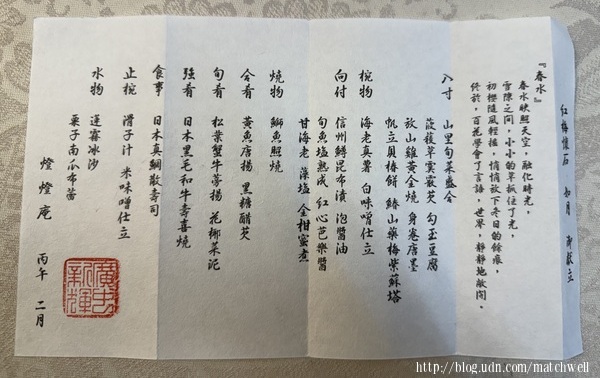 紅梅懷石 如月 御献立
『春水』
春水映照天空，融化時光，
雪隙之間，小小的草抓住了光，
初櫻隨風輕搖，悄悄放下冬日的餘痕，
終於，百花學會了言語，世界，靜靜地敞開。
八寸 山里旬菜盛合
菠菠草羹散芡 勾玉豆腐
放山雞黃金燒 身卷唐墨
帆立貝椿餅 鰆山藥梅紫蘇塔
椀物 海老真薯 白味噌仕立
向付 信州鱒昆布漬 泡醬油
旬魚塩熟成 紅心芭樂醬
甘海老 藻塩 金柑蜜煮
燒物 鰤魚照燒
合肴 黃魚唐揚 黑糖醋芡
旬肴 松葉蟹牛蒡揚 花椰菜泥
強肴 日本黑毛和牛壽喜燒
食事 日本真鯛散壽司
止椀 滑子汁 米味噌仕立
水物 蓮霧冰沙
栗子南瓜布蕾
燈燈庵 丙午 二月
http://blog.udn.com/matchwell